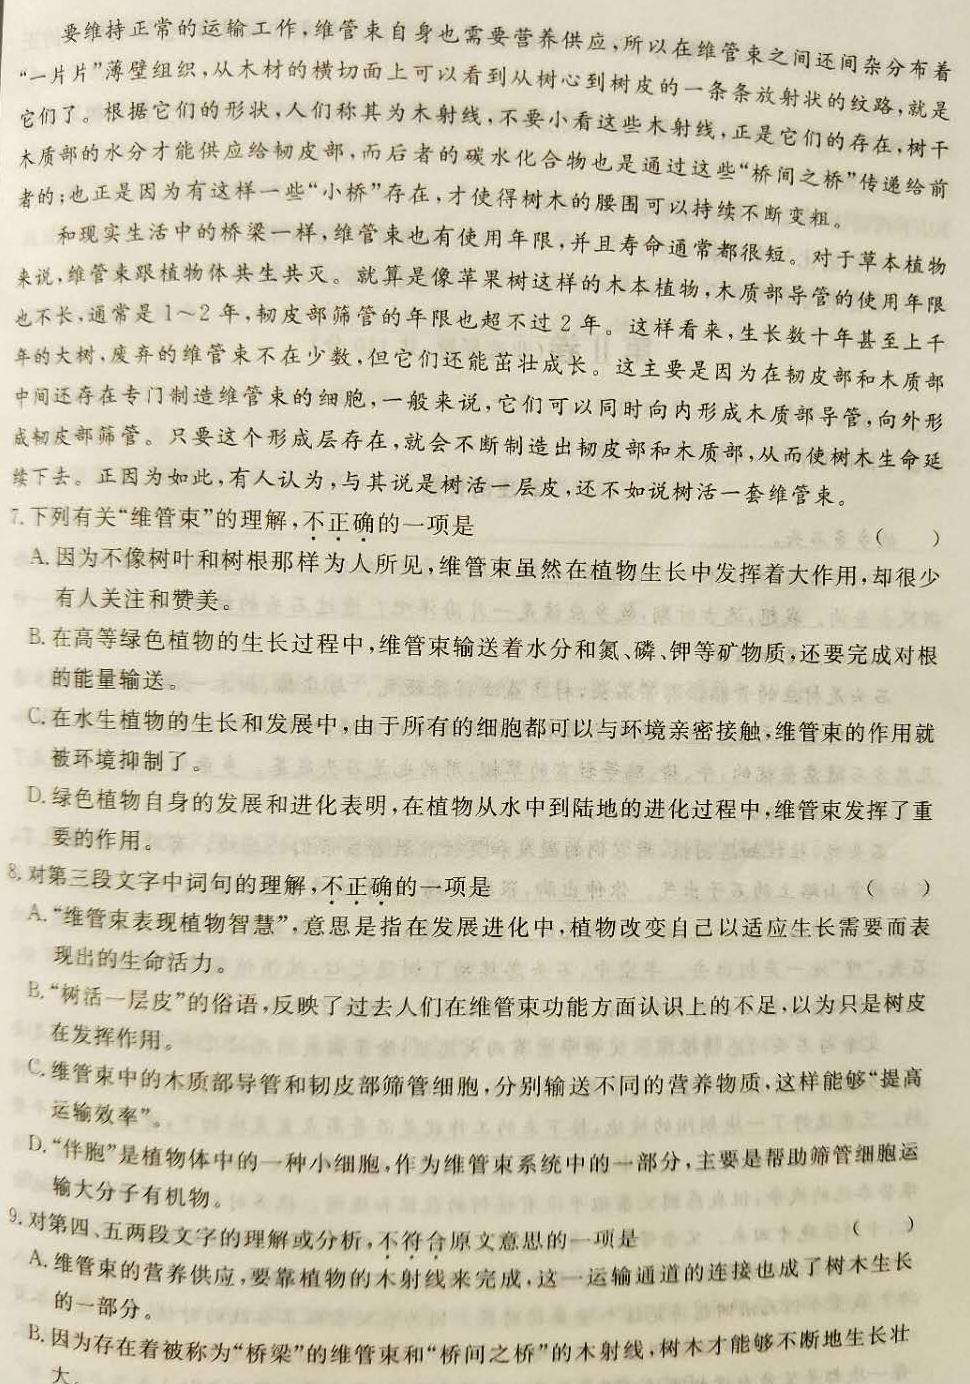 要维持正常的运输工作,维管束自身也需要营养供应,所以在维管束之间还间杂分布着
“一片片”薄壁组织,从木材的横切面上可以看到从树心到树皮的一条条放射状的纹路,就是
它们了。根据它们的形状,人们称其为木射线,不要小看这些木射线,正是它们的存在,树干
木质部的水分才能供应给韧皮部,而后者的碳水化合物也是通过这些“桥间之桥”传递给前
者的;也正是因为有这样一些“小桥”存在,才使得树木的腰围可以持续不断变粗。
和现实生活中的桥梁一样,维管束也有使用年限,并且寿命通常都很短。对于草本植物
来说,维管束跟植物体共生共灭。就算是像苹果树这样的木本植物,木质部导管的使用年限
也不长,通常是1~2年,韧皮部筛管的年限也超不过2年。这样看来,生长数十年甚至上千
年的大树,废弃的维管束不在少数,但它们还能茁壮成长。这主要是因为在韧皮部和木质部
中间还存在专门制造维管束的细胞,一般来说,它们可以同时向内形成木质部导管,向外形
成韧皮部筛管。只要这个形成层存在,就会不断制造出韧皮部和木质部,从而使树木生命延
续下去。正因为如此,有人认为,与其说是树活一层皮,还不如说树活一套维管束。
7.下列有关“维管束”的理解,不正确的一项是 ( )
A.因为不像树叶和树根那样为人所见,维管束虽然在植物生长中发挥着大作用,却很少
有人关注和赞美。
B.在高等绿色植物的生长过程中,维管束输送着水分和氮、磷、钾等矿物质,还要完成对根
的能量输送。
C.在水生植物的生长和发展中,由于所有的细胞都可以与环境亲密接触,维管束的作用就
被环境抑制了。
D.绿色植物自身的发展和进化表明,在植物从水中到陆地的进化过程中,维管束发挥了重
要的作用。
8.对第三段文字中词句的理解,不正确的一项是 ( )
A.“维管束表现植物智慧”,意思是指在发展进化中,植物改变自己以适应生长需要而表
现出的生命活力。
B.“树活一层皮”的俗语,反映了过去人们在维管束功能方面认识上的不足,以为只是树皮
在发挥作用。
C.维管束中的木质部导管和韧皮部筛管细胞,分别输送不同的营养物质,这样能够“提高
运输效率”。
D.“伴胞”是植物体中的一种小细胞,作为维管束系统中的一部分,主要是帮助筛管细胞运
输大分子有机物。
9.对第四、五两段文字的理解或分析,不符合原文意思的一项是 ( )
A.维管束的营养供应,要靠植物的木射线来完成,这一运输通道的连接也成了树木生长
的一部分。
B.因为存在着被称为“桥梁”的维管束和“桥间之桥”的木射线,树木才能够不断地生长壮
大。